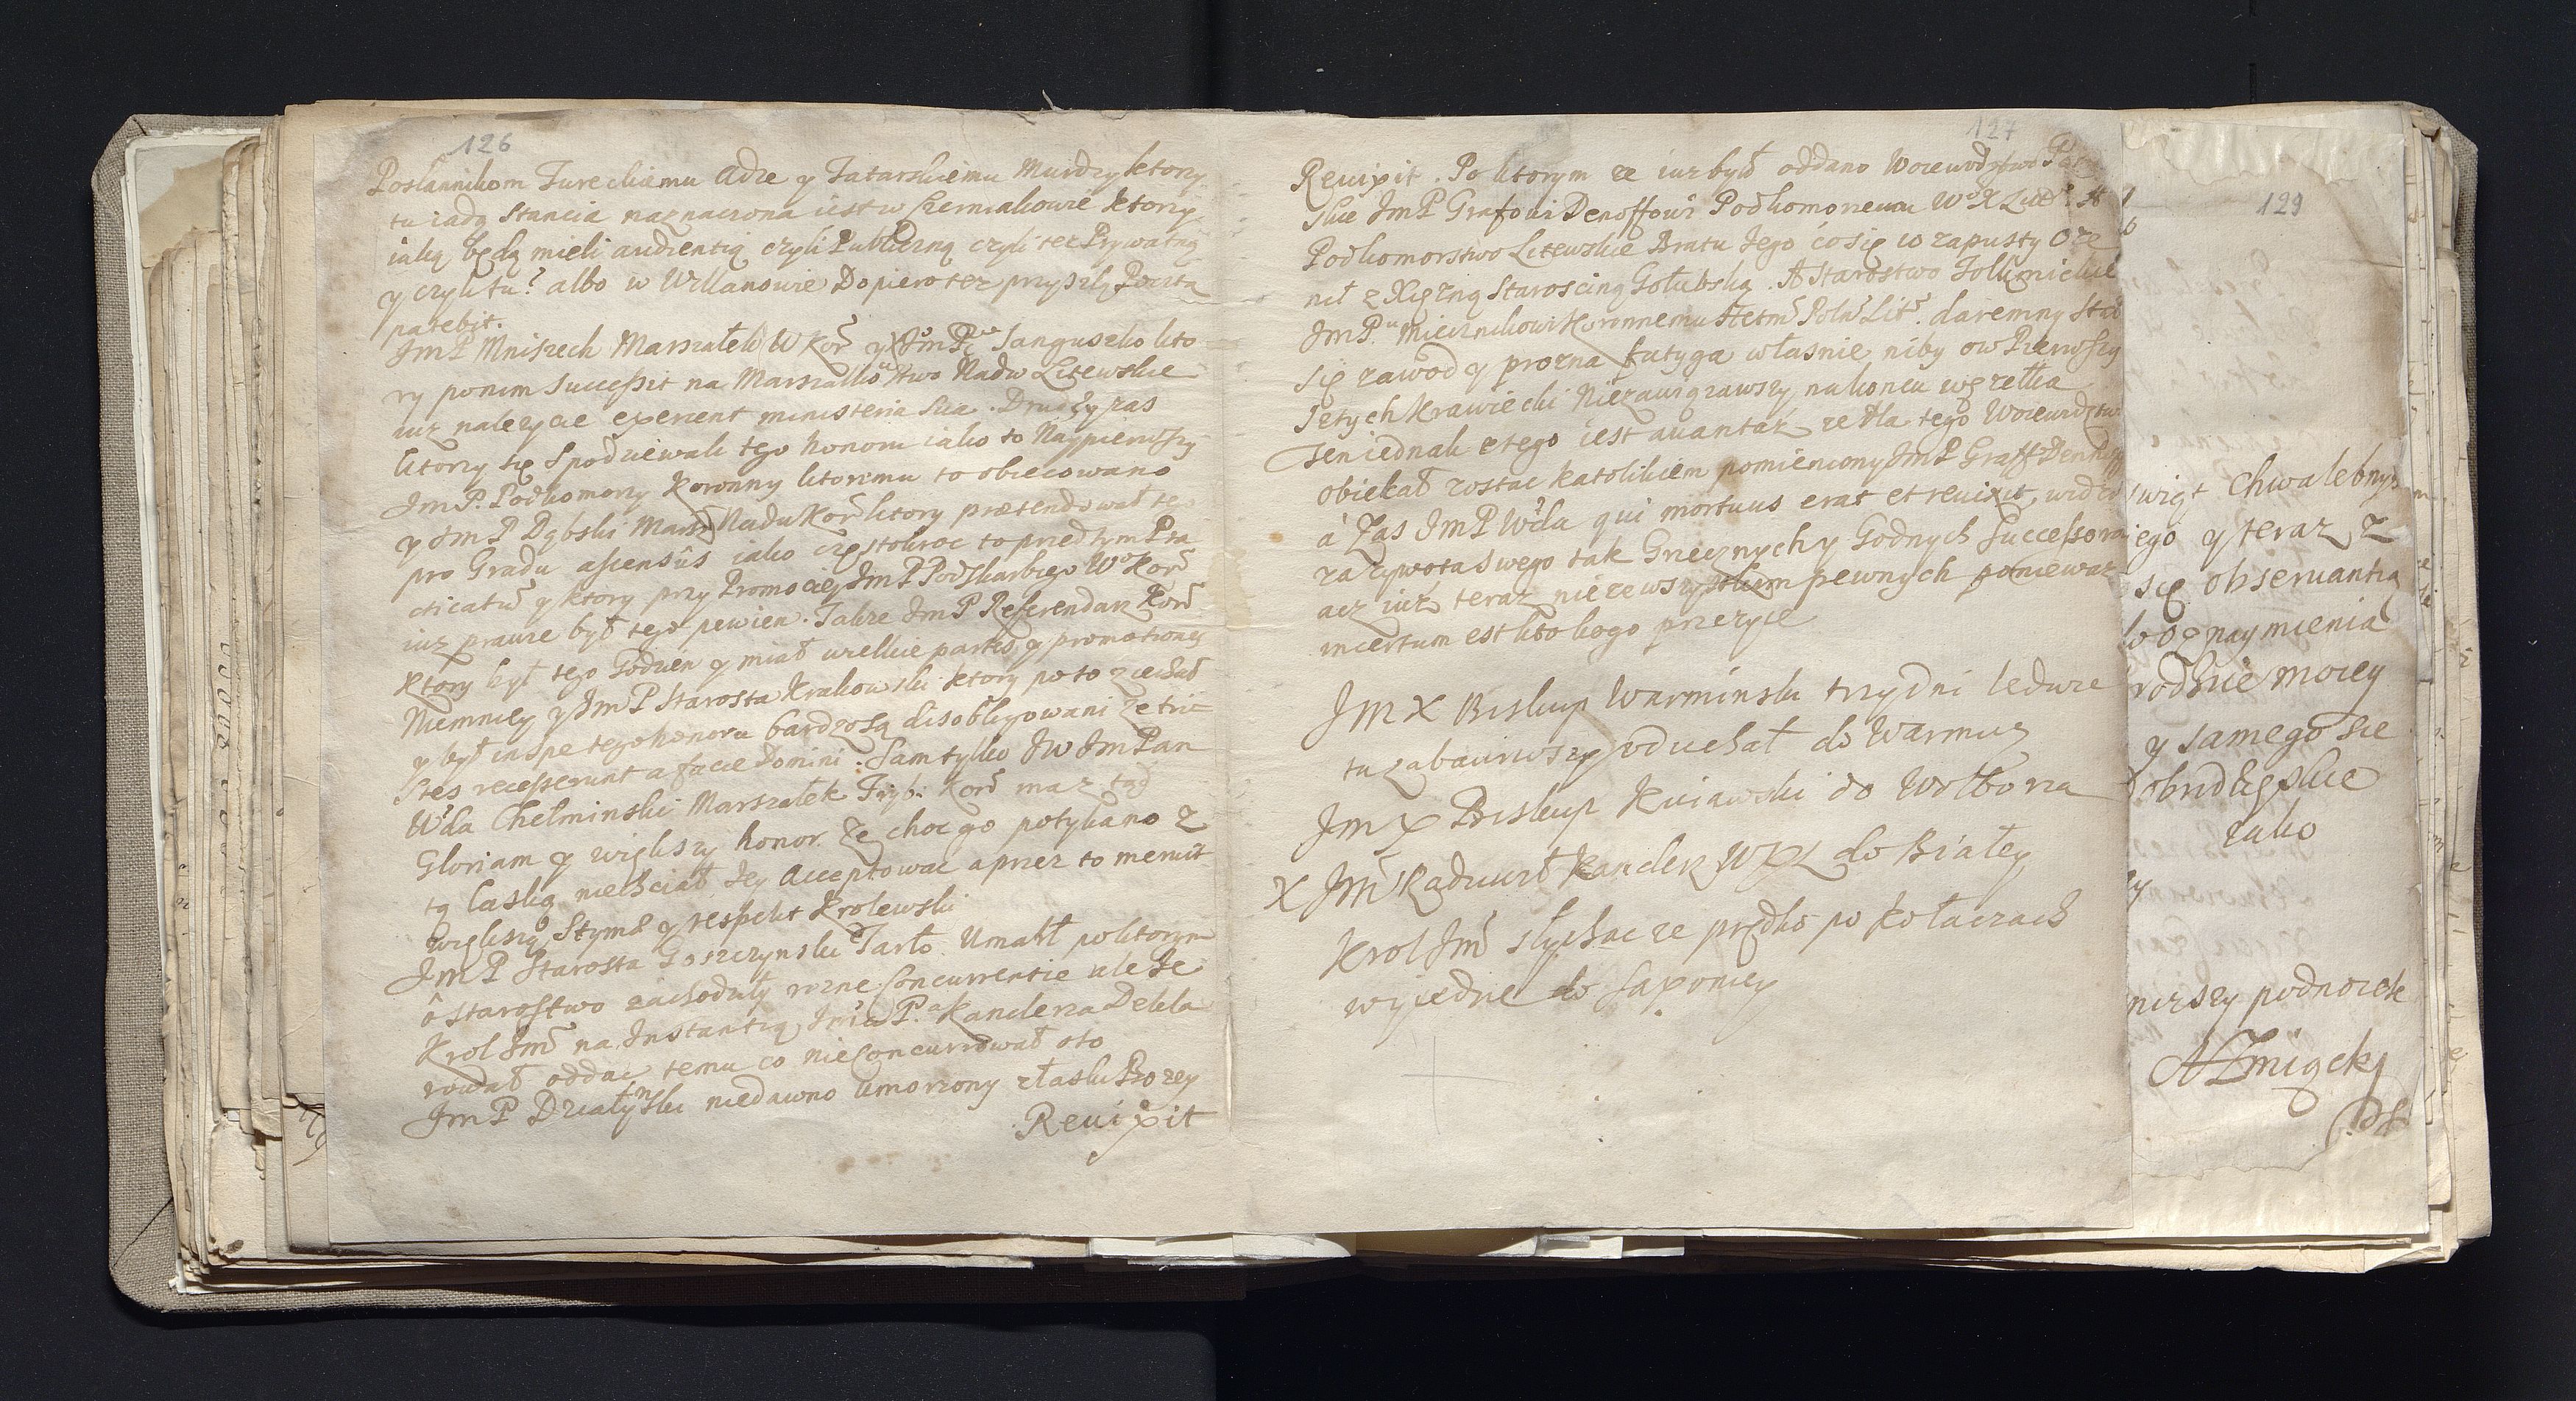 126
Posłannikom Tureckiemu Adze y Tatarskiemu Murdzy ktory
tu iadą stancia naznaczona iest w Czerniakowie ktory
iaką będą mieli audientią czyli Publiczną czyli tez Prywatną
y czyli tu? albo w Willanowie Dopiero tez przyszłą Pocztą
patebit.
JmP Mniszech Marszałek W Kor y X JmP Sanguszko kto
ry ponim Successit na Marszałkowstwo Nadw Litewskie
iuz nalezycie exercent ministeria sua. Drudzy zas
ktorzy się spodziewali tego honoru iako to Naypierwszy
JmP. Podkomorzy Koronny ktoremu to obiecowano
y JmP Dąbski Marsz Nadw Kor ktory prætendował te
pro Gradu ascensûs iako częstokroc to przed tym Pra
cticatũ y ktory przy Promocięy JmP Podskarbiego Wo Kor
iuz prawie był tego pewien. Takze JmP Referendarz Kor
Ktory był tego Godzien y miał wielkie partes y promotiones
Niemniey y JmP Starosta Krakowski ktory po to ziechał
y był in spe tego honoru bardzo są disobligowani ze tri
stes recesserunt a facie Domini. Sam tylko JW JmPan
Wda Chełminski Marszałek Tryb: Kor ma z tąd
Gloriam y większy honor. Ze choc go potykano z
tą laską niechciał Jey Acceptowac a przez to meruit
większą Stymę y respekt Krolewski
JmP Starosta Goszczynski Tarło Umarł po ktorym
ô starostwo zachodziły rozne Concurrentie ale Je
Krol Jmć na Instantią Jmci P. Kanclerza Dekla
rował oddac temu co nie Concurrował oto
JmP Działynski niedawno umorzony z łaski Bozey
Revixit
127
Revixit. Po ktorym ze iuz był oddano Woiewodztwo
skie JmP Grafowi Denoffowi Podkomorzemu Wo X Lit. A
Podkomorstwo Litewskie Bratu Jego co się w zapusty Oze
nił z Xięzną Staroscing Gołubską. A Starostwo Tolkmickie
JmP. Miecznikowi Koronnemu Hetm Poln Lit. daremny stał
się zawod y prozna fatyga własnie niby ow Pierwszy
Sztych Krawiecki Niezawiązawszy na koncu węzełka
Ten iednak z tego iest avantaz ze dla tego Woiewodztwa
obiekał zostac Katolikiem pomieniony JmP Graff Denhoff
à Zas JmP Wda qui mortuus erat et revixit, widzi
za zywota swego tak Grzecznych y Godnych Successorow
acz iuz teraz nie ze wszystkim pewnych poniewaz
incertum est kto kogo przezyie
JmX Biskup Warminski trzy dni ledwie
tu zabawiwszy odiechał do Warmiy
Jm X Biskup Kuiawski do Wolborza
X Jmć Radziwił Kanclerz WXL do Białey
Krol Jmć słychac ze prędko po Kołaczach
wyiedzie do Saxoniey
129
Chwalebnych
iego y teraz z
się observantią
oznaymienia
moiey
y samego sie
iako
podnozek
AZmigcky